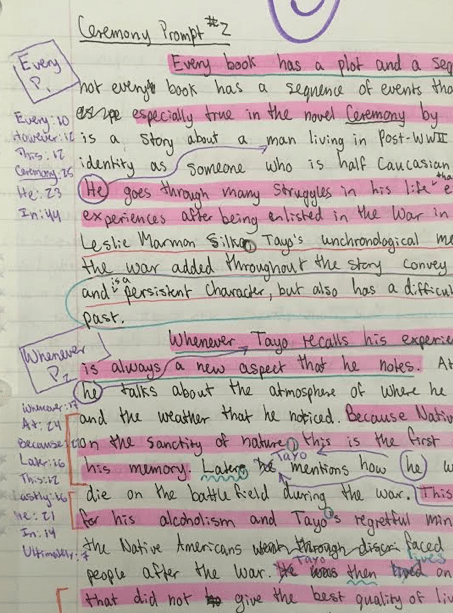 Ceremony Prompt #2
Every book has a plot and a seq
not every book has a sequence of events tha
especially true in the novel Ceremony by
is a story about a man living in Post-WWII
identity as someone who is half Caucasian
He goes through many struggles in his life
experiences after being enlisted in the War in
Leslie Marmon Silko, Tayo's unchronological me
the war added throughout the story convey
and is a persistent character, but also has a difficul
past.
Whenever Tayo recalls his experie
is always a new aspect that he notes. At
he talks about the atmosphere of where he
and the weather that he noticed. Because Nativ
on the sanctity of nature, this is the first
his memory. Later, Tayo mentions how he w
die on the battlefield during the war. This
for his alcoholism and Tayo's regretful min
the Native Americans went through faced
people after the war. Tayo then lives on
that did not give the best quality of liv
Every
P1
Every: 10
However: 12
This: 12
Ceremony: 25
He: 23
In: 44
Whenever
P2
Whenever:
At: 24
Because:
Later: 16
This: 12
Lastly: 16
He: 21
In: 14